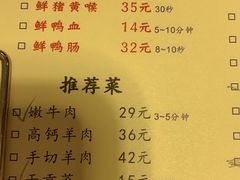 鲜猪黄喉 35元 30秒
鲜鸭血 14元 5~10分钟
鲜鸭肠 32元 8~10秒
推荐菜
嫩牛肉 29元 3~5分钟
高钙羊肉 36元
手切羊肉 42元
15元